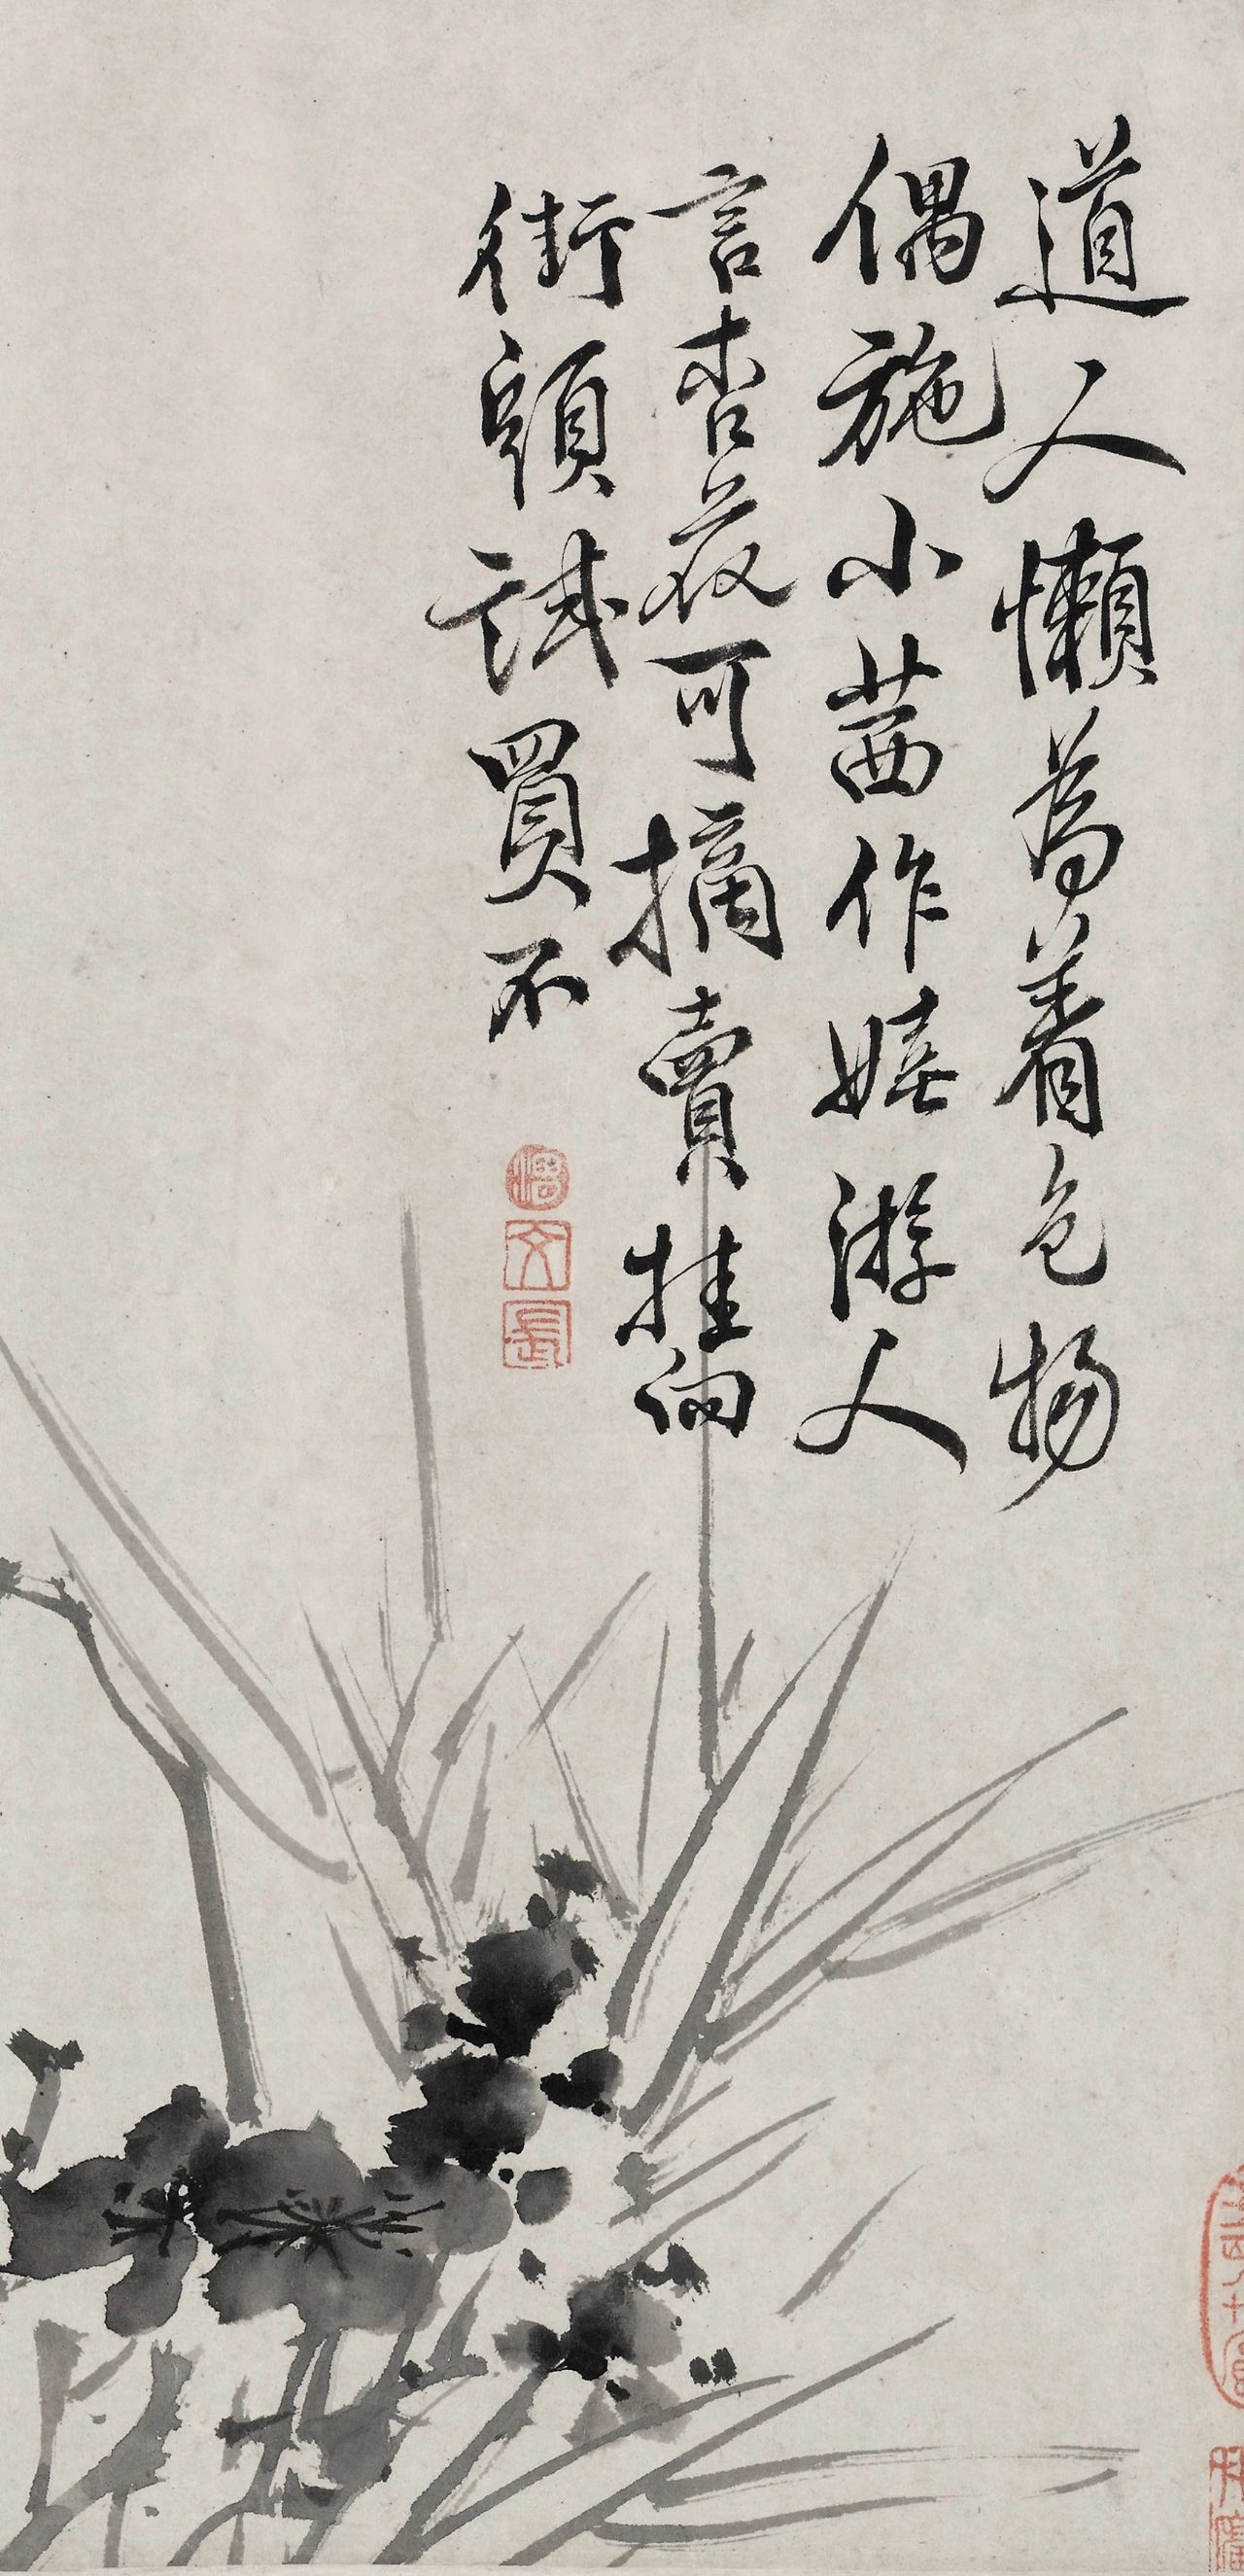 道人懶為着色物
偶施小茜作嬉游人
言杏花可摘賣挂向
街頭試買不
湑
文
長